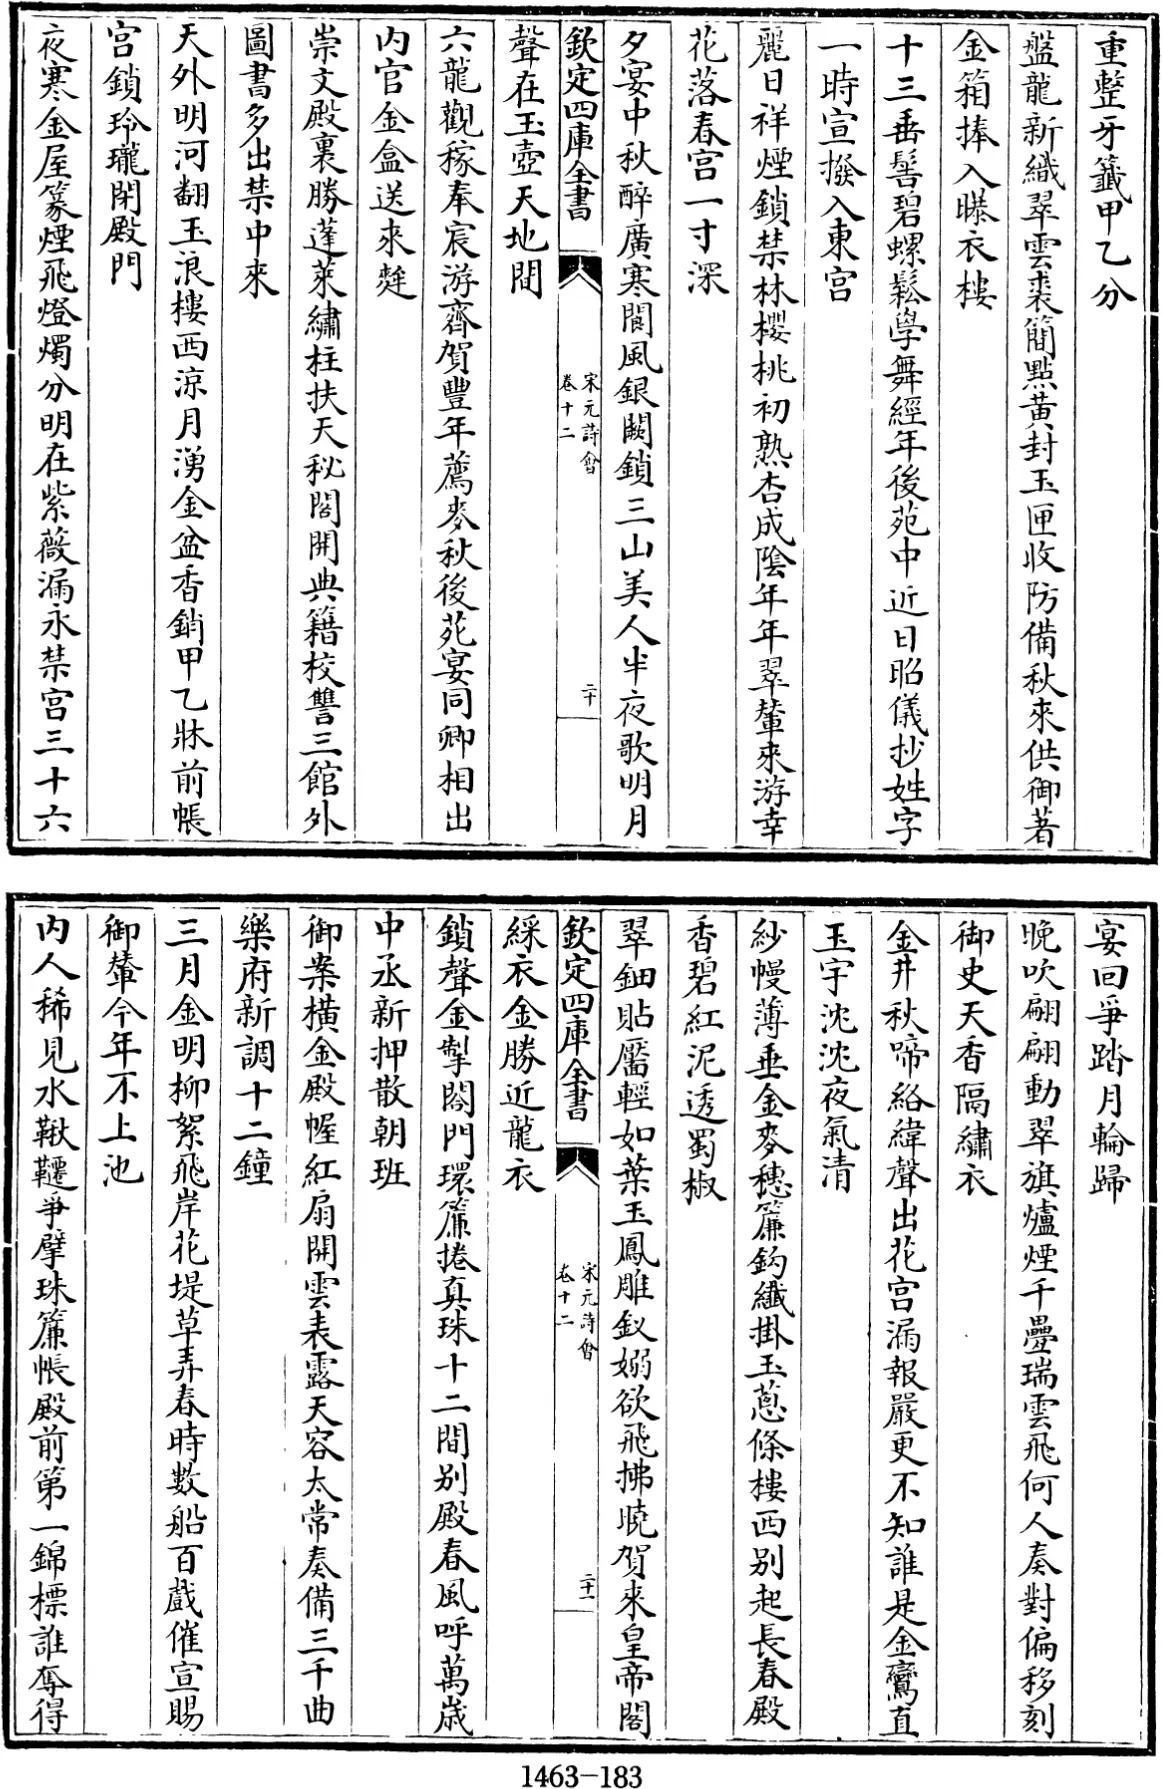 重整牙籤甲乙分
盤龍新織翠雲裘簡點黃封玉匣收防備秋來供御著
金箱捧入曝衣樓
十三垂髻碧螺鬆學舞經年後苑中近日昭儀抄姓字
一時宣撥入東宮
麗日祥煙鎖禁林櫻桃初熟杏成陰年年翠輦來游幸
花落春宮一寸深
夕宴中秋醉廣寒閬風銀闕鎖三山美人半夜歌明月
欽定四庫全書
宋元詩會
卷十二
二十
聲在玉壺天地間
六龍觀稼奉宸游齊賀豐年薦麥秋後苑宴同卿相出
内官金盒送來麰
崇文殿裏勝蓬萊繡柱扶天秘閣開典籍校讐三館外
圖書多出禁中來
天外明河翻玉浪樓西涼月湧金盆香銷甲乙牀前帳
宮鎖玲瓏閉殿門
夜寒金屋篆煙飛燈燭分明在紫薇漏永禁宮三十六
宴回爭踏月輪歸
晚吹翩翩動翠旗爐煙千疊瑞雲飛何人奏對偏移刻
御史天香隔繡衣
金井秋啼絡緯聲出花宮漏報嚴更不知誰是金鑾直
玉宇沈沈夜氣清
紗幔薄垂金麥穗簾鈎纖掛玉蔥條樓西別起長春殿
香碧紅泥透蜀椒
翠鈿貼靨輕如葉玉鳳雕釵嫋欲飛拂曉賀來皇帝閣
欽定四庫全書
宋元詩會
卷十二
二十一
綵衣金勝近龍衣
鎖聲金掣閤門環簾捲真珠十二間別殿春風呼萬歲
中丞新押散朝班
御案横金殿幄紅扇開雲表露天容太常奏備三千曲
樂府新調十二鐘
三月金明柳絮飛岸花堤草弄春時數船百戲催宣賜
御輦今年不上池
内人稀見水鞦韆爭擘珠簾帳殿前第一錦標誰奪得
1463-183